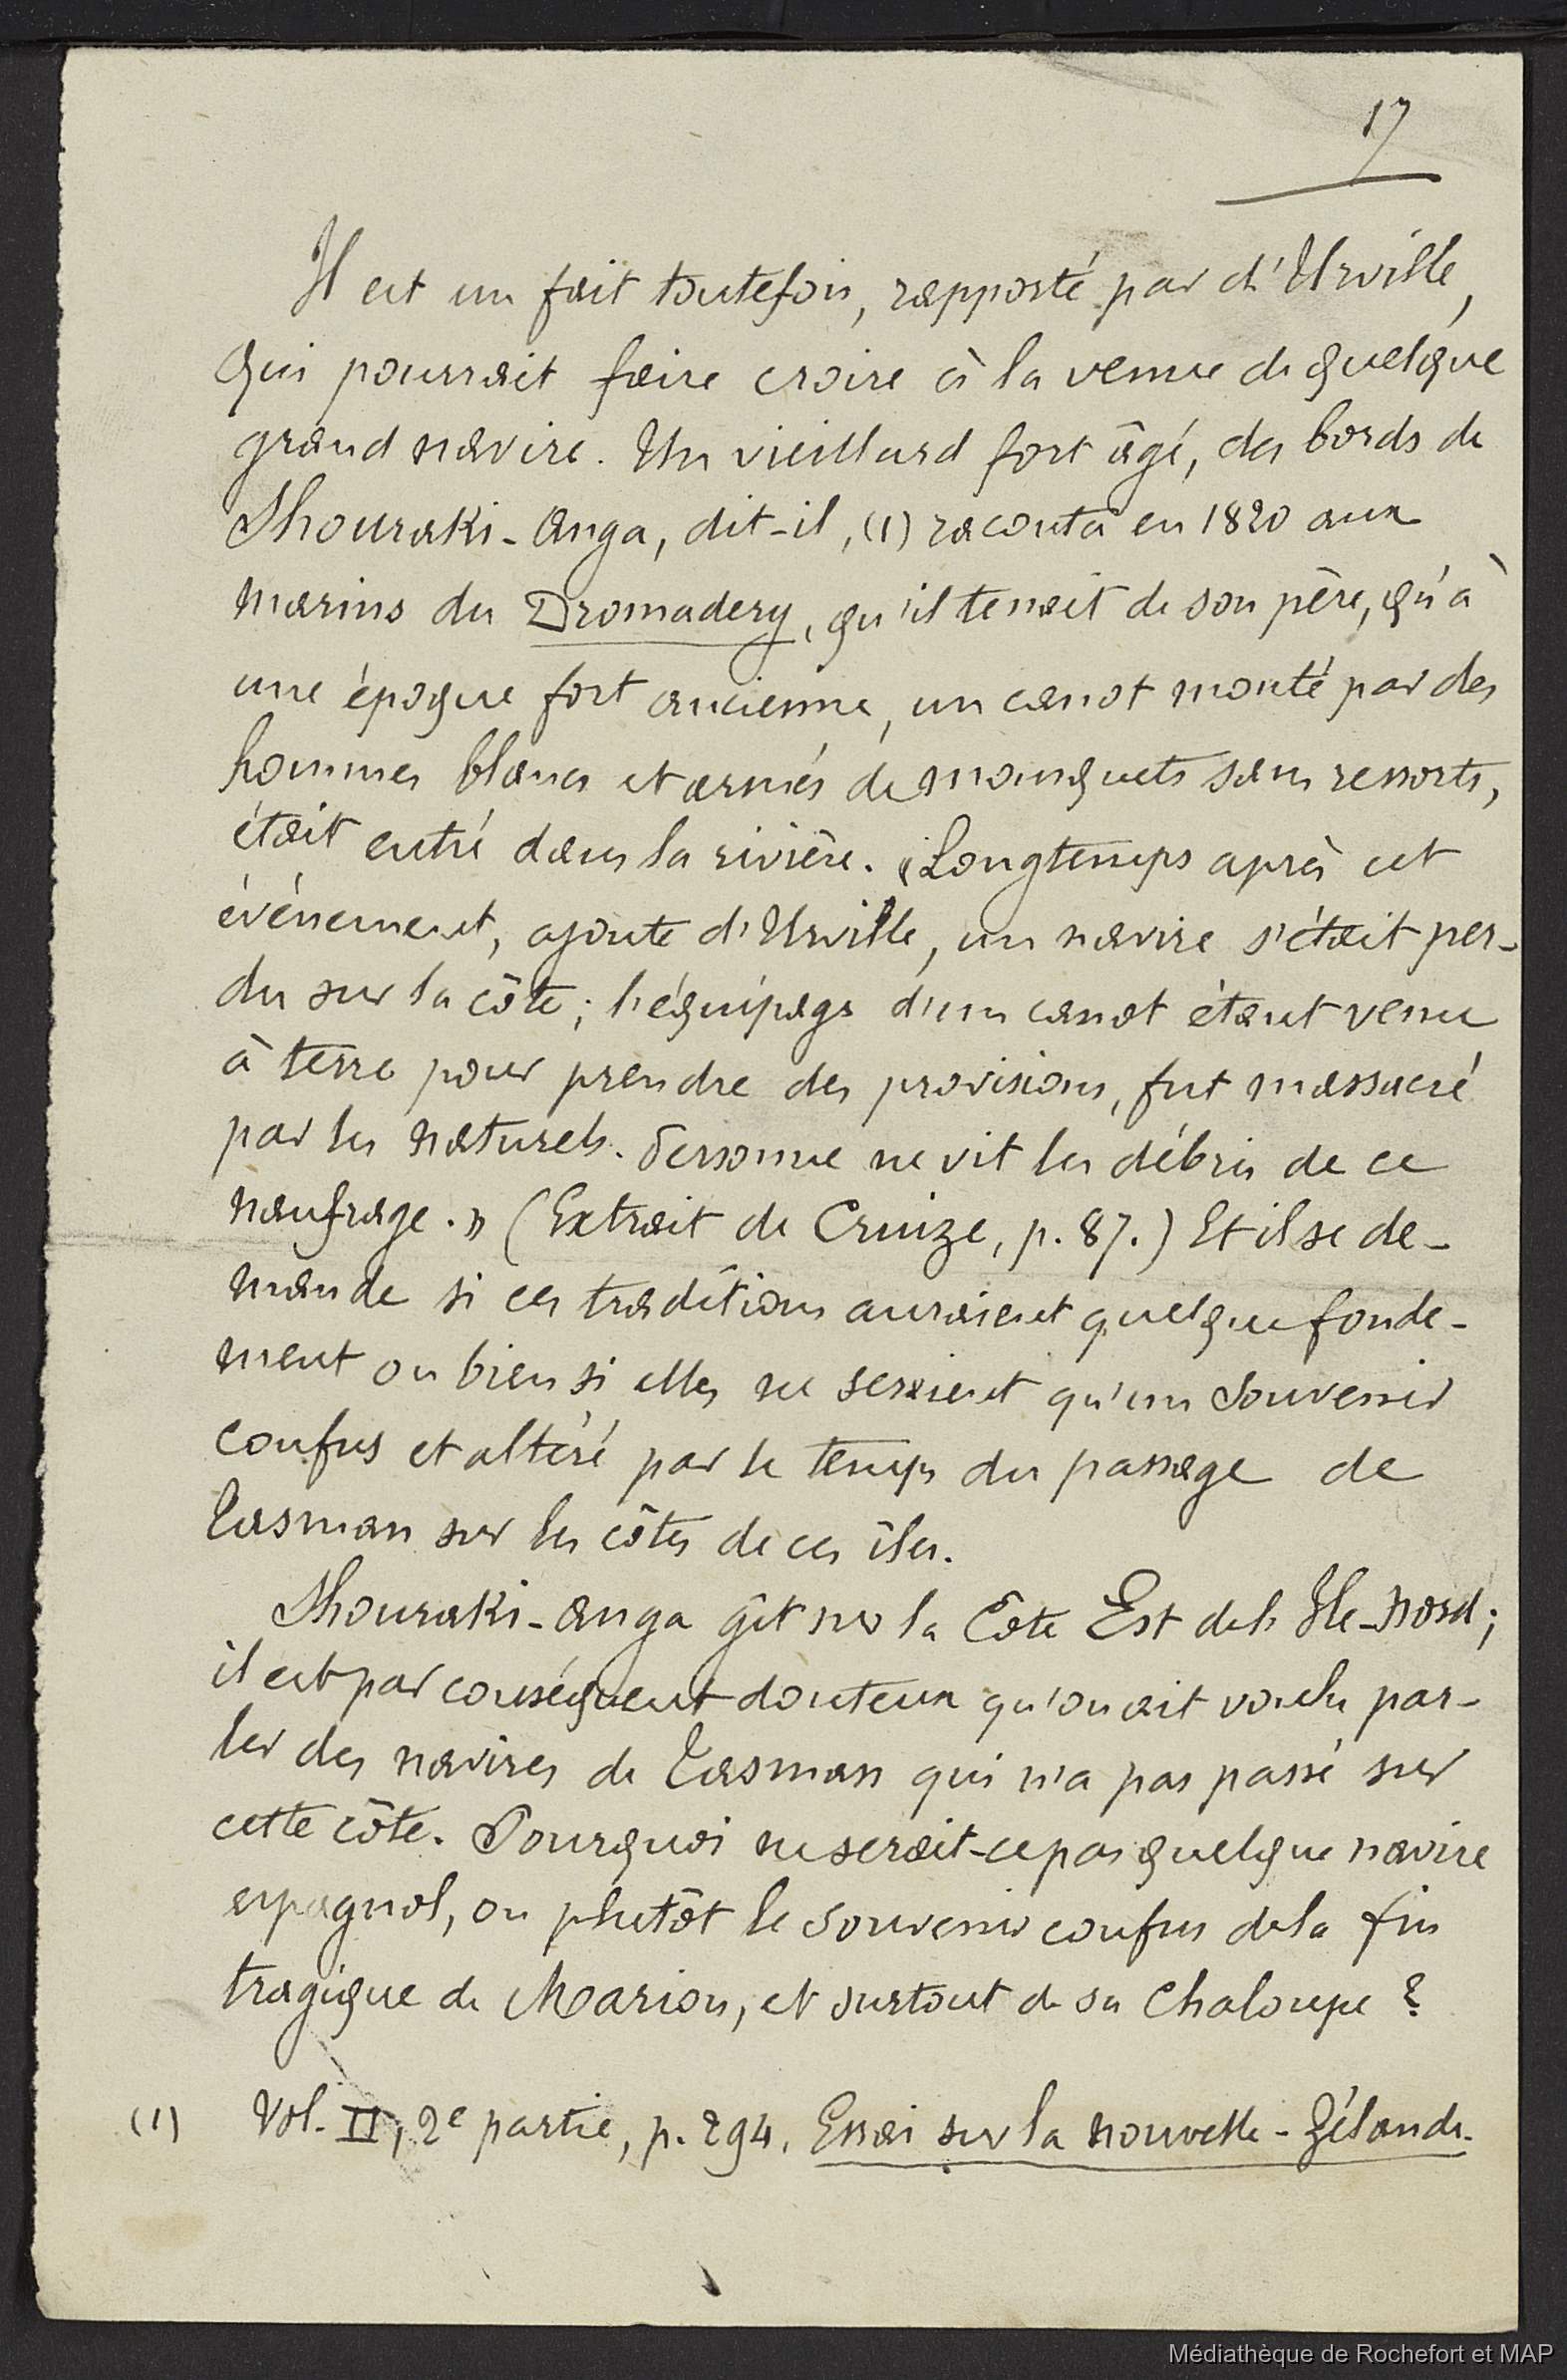 17
Il est un fait toutefois, rapporté par d'Urville,
qui pourrait faire croire à la venue de quelque
grand navire. Un vieillard fort âgé, des bords de
Shouraki-Anga, dit-il, (1) raconta en 1820 aux
marins du Dromadery, qu'il tenait de son père, qu'à
une époque fort ancienne, un canot monté par des
hommes blancs et armés de mousquets sans ressorts,
était entré dans la rivière. «Longtemps après cet
événement, ajoute d'Urville, un navire s'était per-
du sur la côte; l'équipage d'un canot étant venu
à terre pour prendre des provisions, fut massacré
par les naturels. Personne ne vit les débris de ce
naufrage.» (Extrait de Cruize, p. 87.) Et il se de-
mande si ces traditions auraient quelque fonde-
ment ou bien si elles ne seraient qu'un souvenir
confus et altéré par le temps du passage de
Tasman sur les côtes de ces îles.
Shouraki-Anga gît sur la Côte Est de l'Ile-Nord;
il est par conséquent douteux qu'on ait voulu par-
ler des navires de Tasman qui n'a pas passé sur
cette côte. Pourquoi ne serait-ce pas quelque navire
espagnol, ou plutôt le souvenir confus de la fin
tragique de Marion, et surtout de sa Chaloupe ?
(1) Vol. II, 2e partie, p. 294. Essai sur la nouvelle-Zélande.
Médiathèque de Rochefort et MAP